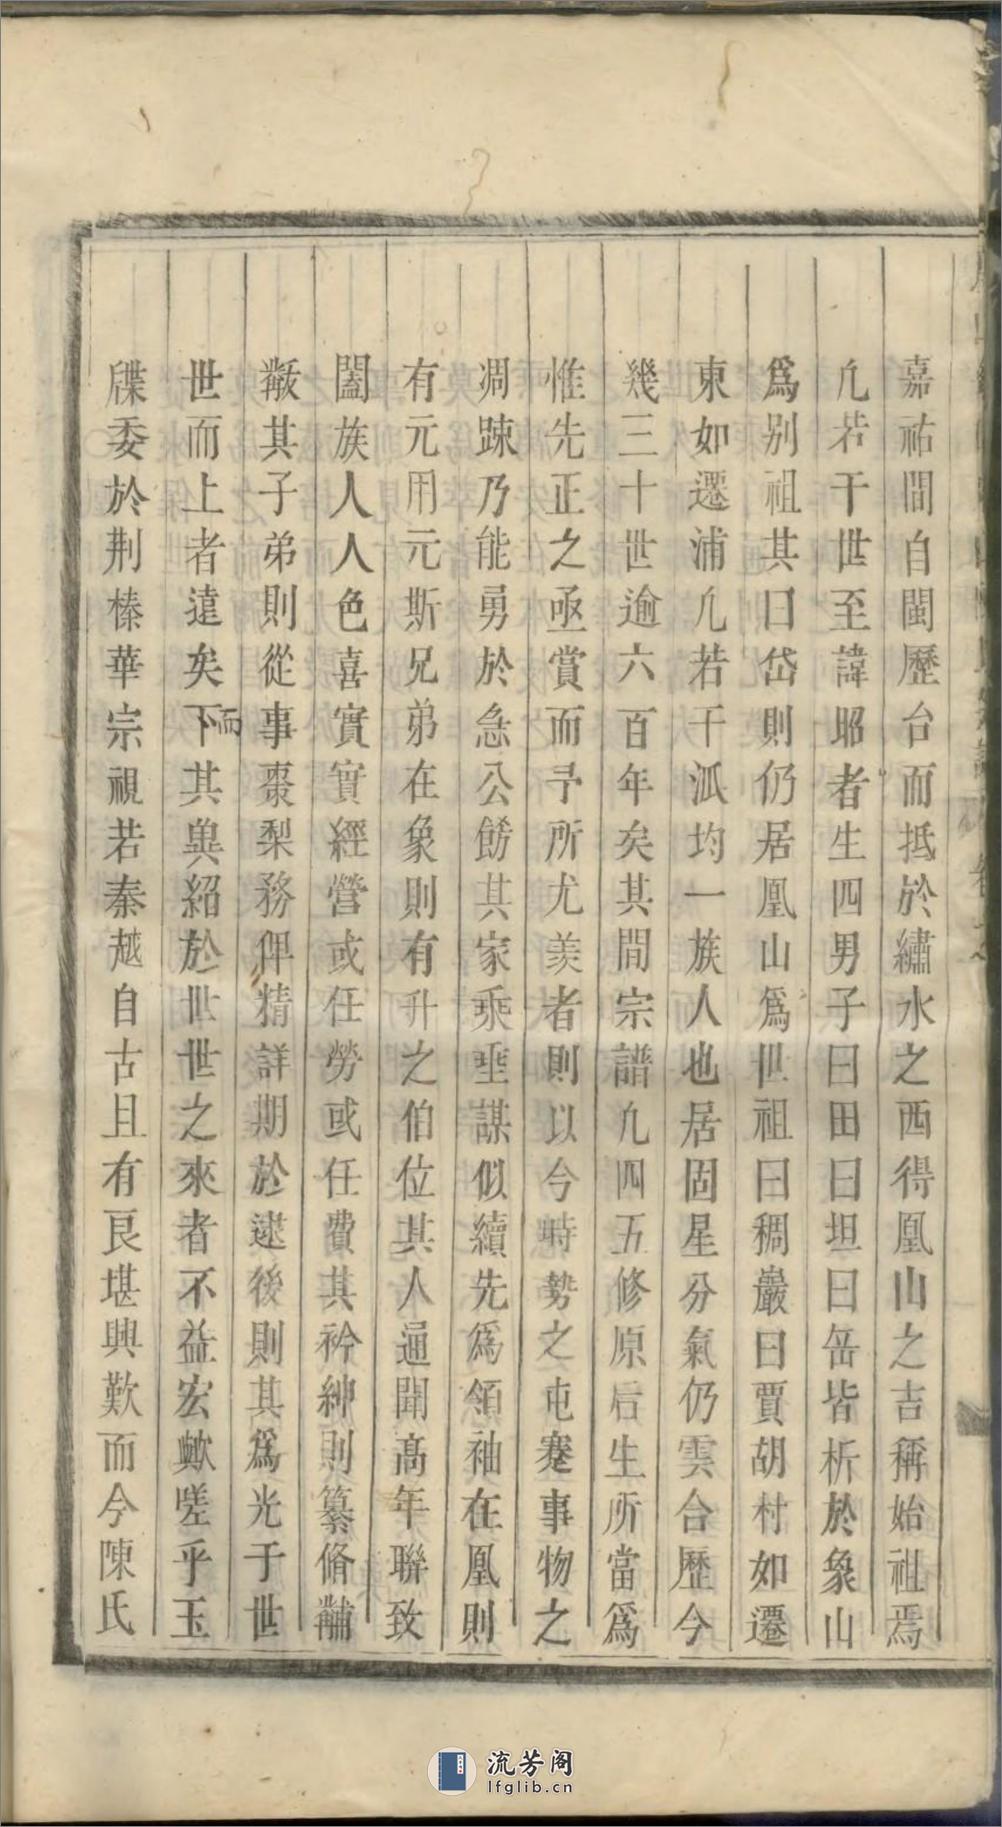 嘉祐間自閩歷台而抵於繡水之西得凰山之吉稱始祖焉
凢若干世至諱昭者生四男子曰田曰坦曰缶皆析於象山
爲别祖其曰岱則仍居凰山爲世祖曰稠巖曰賈胡村如遷
東如遷浦凢若干派均一族人也居固星分氣仍雲合歷今
幾三十世逾六百年矣其間宗譜凢四五修原后生所當爲
惟先正之亟賞而予所尤羨者則以今時勢之屯蹇事物之
凋踈乃能勇於急公餙其家乘垂謀似續先爲領袖在凰則
有元用元斯兄弟在象則有升之伯位其人通聞高年聯致
闔族人人色喜實實經營或任勞或任費其衿紳則纂脩黼
黻其子弟則從事棗梨務俾精詳期於逮後則其爲光于世
世而上者遠矣下而其與紹於世世之來者不益宏歟嗟乎玉
牒委於荆榛華宗視若秦越自古且有艮堪興歎而今陳氏
流芳阁
lfglib.cn